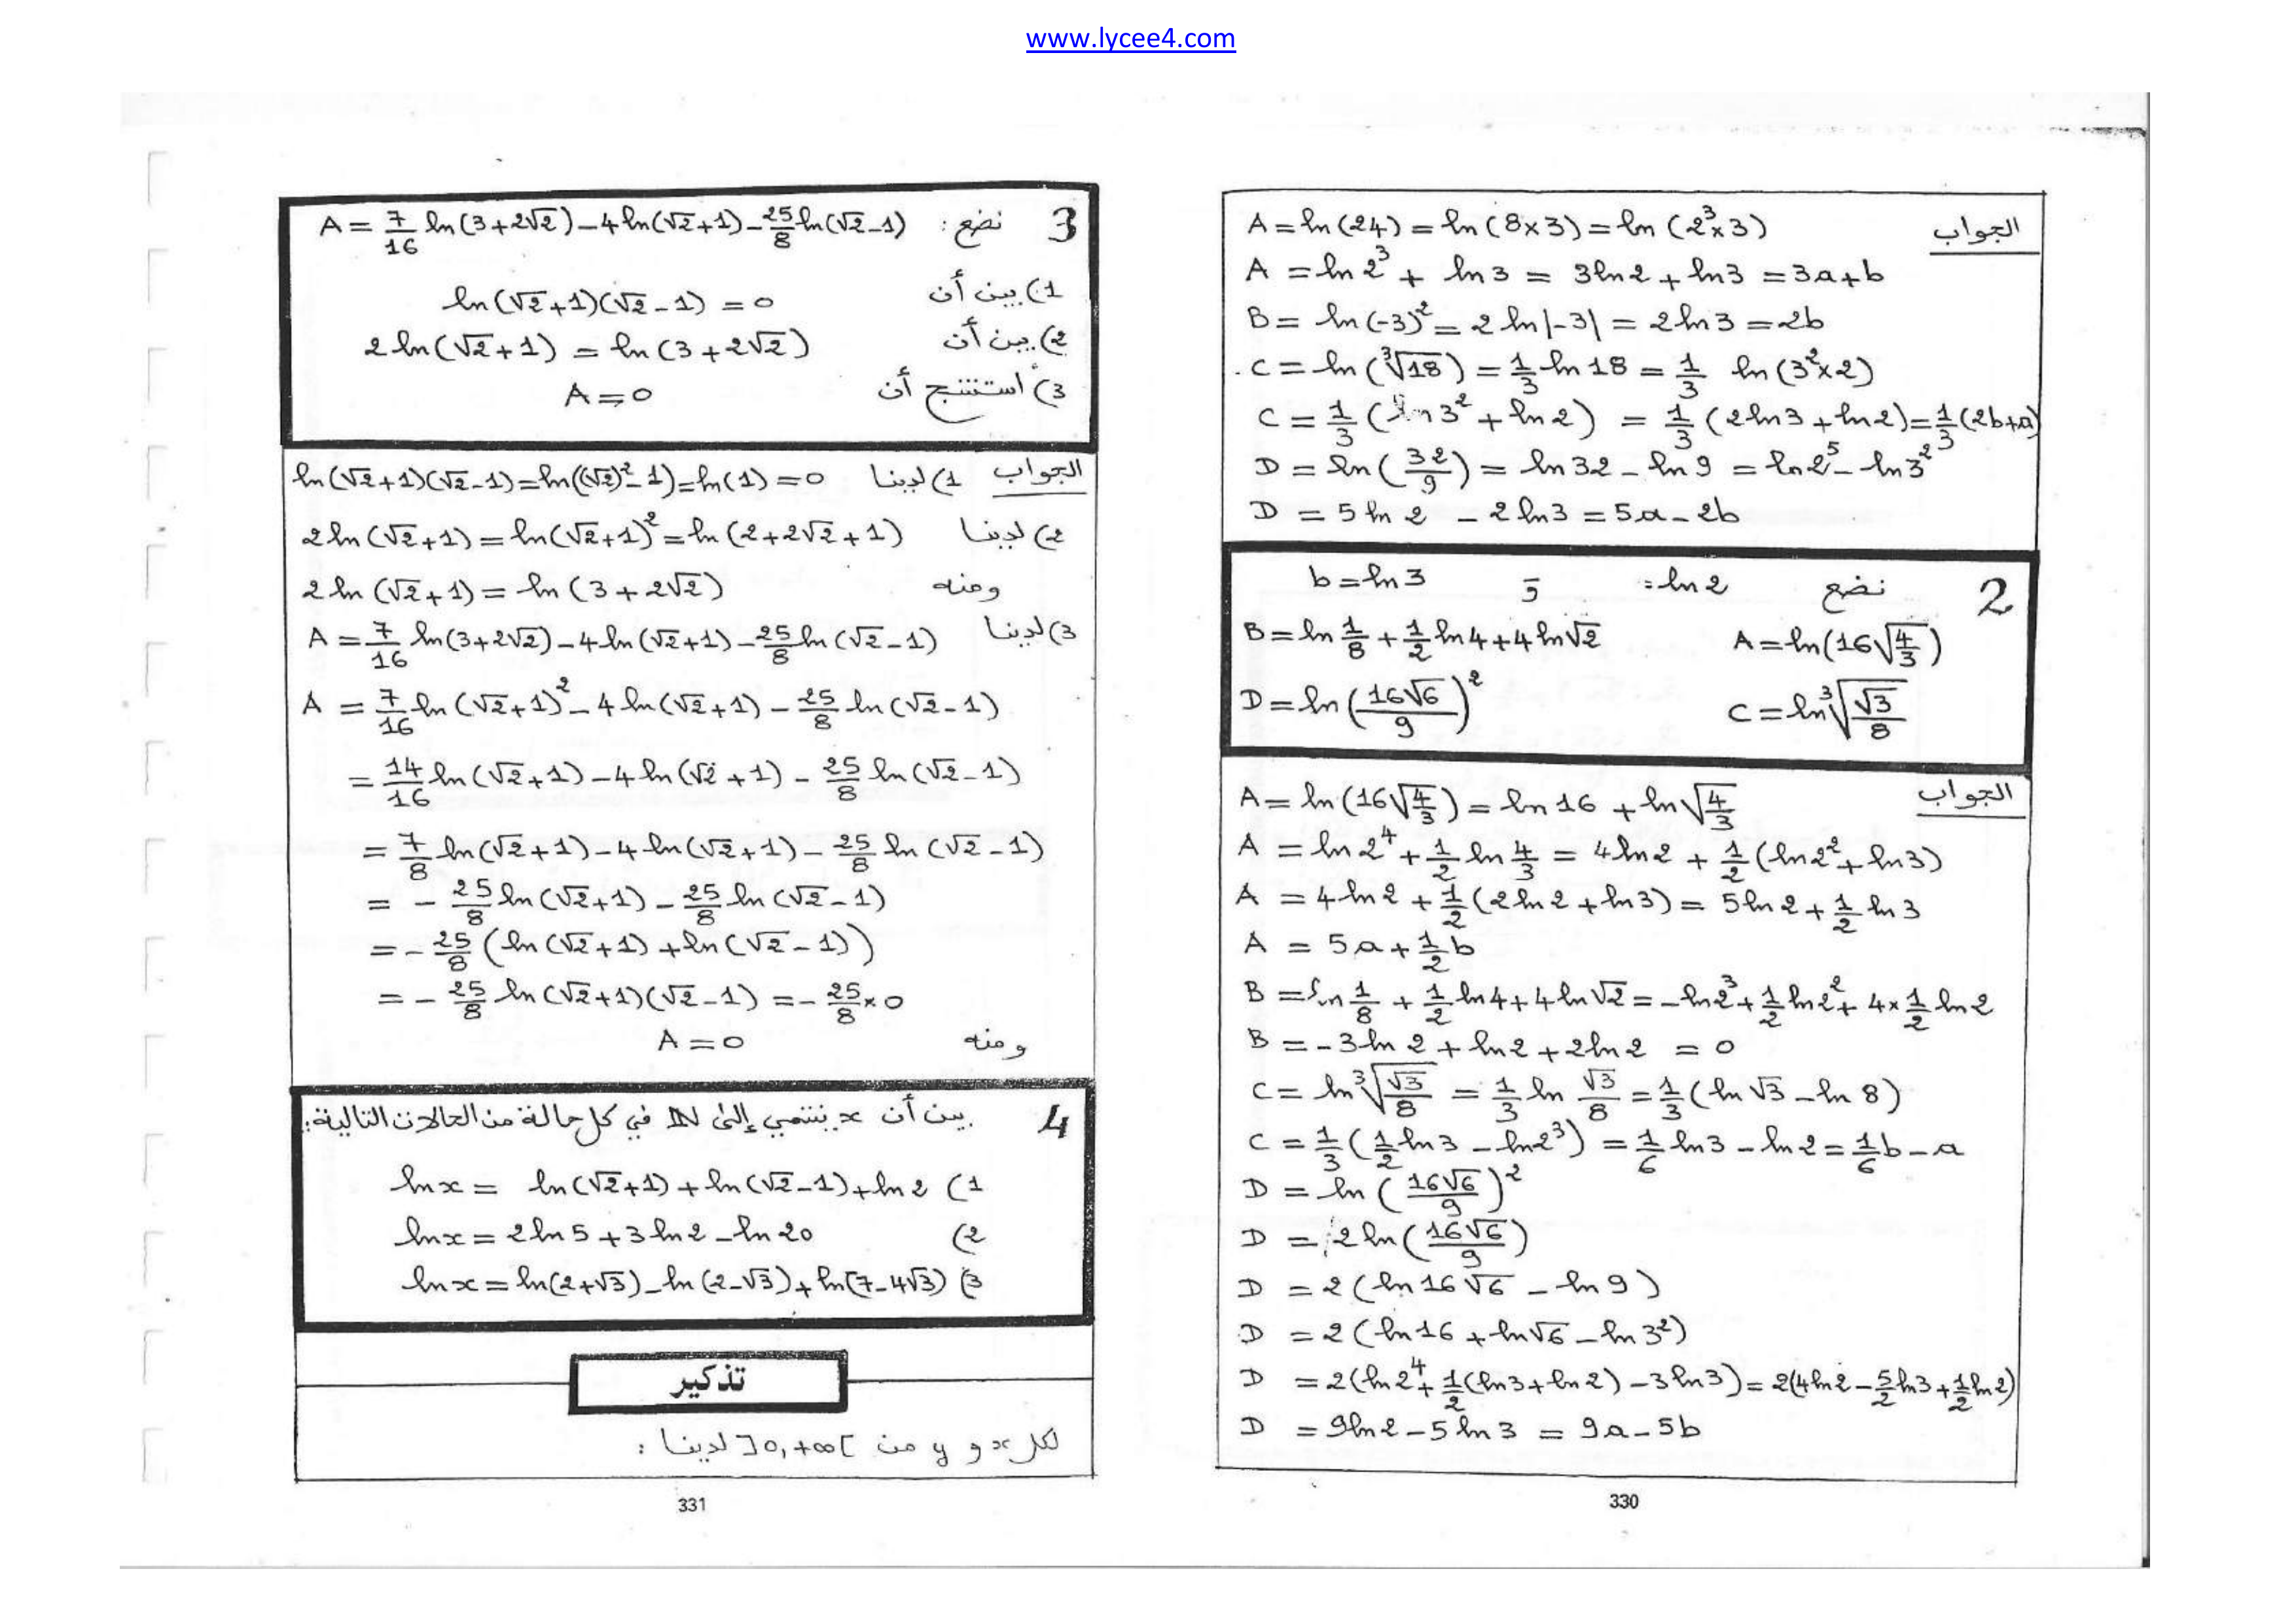 www.lycee4.com
الجواب A = ln(24) = ln(8×3) = ln(2³×3)
A = ln2³ + ln3 = 3ln2 + ln3 = 3a+b
B = ln(-3)² = 2ln|-3| = 2ln3 = 2b
C = ln(∛18) = 1/3 ln18 = 1/3 ln(3²×2)
C = 1/3 (ln3² + ln2) = 1/3 (2ln3 + ln2) = 1/3 (2b+a)
D = ln(32/9) = ln32 - ln9 = ln2⁵ - ln3²
D = 5ln2 - 2ln3 = 5a - 2b
2 نضع = ln2 و b = ln3
A = ln(16√(4/3)) B = ln 1/8 + 1/2 ln4 + 4ln√2
C = ln ∛(√3/8) D = ln(16√6/9)²
الجواب A = ln(16√(4/3)) = ln16 + ln√(4/3)
A = ln2⁴ + 1/2 ln 4/3 = 4ln2 + 1/2 (ln2² + ln3)
A = 4ln2 + 1/2 (2ln2 + ln3) = 5ln2 + 1/2 ln3
A = 5a + 1/2 b
B = ln 1/8 + 1/2 ln4 + 4ln√2 = -ln2³ + 1/2 ln2² + 4 × 1/2 ln2
B = -3ln2 + ln2 + 2ln2 = 0
C = ln ∛(√3/8) = 1/3 ln √3/8 = 1/3 (ln√3 - ln8)
C = 1/3 (1/2 ln3 - ln2³) = 1/6 ln3 - ln2 = 1/6 b - a
D = ln(16√6/9)²
D = 2ln(16√6/9)
D = 2(ln16√6 - ln9)
D = 2(ln16 + ln√6 - ln3²)
D = 2(ln2⁴ + 1/2 (ln3 + ln2) - 3ln3) = 2(4ln2 - 5/2 ln3 + 1/2 ln2)
D = 9ln2 - 5ln3 = 9a - 5b
330
3 نضع : A = 7/16 ln(3+2√2) - 4ln(√2+1) - 25/8 ln(√2-1)
1) بين أن ln(√2+1)(√2-1) = 0
2) بين أن 2ln(√2+1) = ln(3+2√2)
3) استنتج أن A = 0
الجواب 1) لدينا ln(√2+1)(√2-1) = ln((√2)²-1) = ln(1) = 0
2) لدينا 2ln(√2+1) = ln(√2+1)² = ln(2+2√2+1)
ومنه 2ln(√2+1) = ln(3+2√2)
3) لدينا A = 7/16 ln(3+2√2) - 4ln(√2+1) - 25/8 ln(√2-1)
A = 7/16 ln(√2+1)² - 4ln(√2+1) - 25/8 ln(√2-1)
= 14/16 ln(√2+1) - 4ln(√2+1) - 25/8 ln(√2-1)
= 7/8 ln(√2+1) - 4ln(√2+1) - 25/8 ln(√2-1)
= - 25/8 ln(√2+1) - 25/8 ln(√2-1)
= - 25/8 (ln(√2+1) + ln(√2-1))
= - 25/8 ln(√2+1)(√2-1) = - 25/8 × 0
ومنه A = 0
4 بين أن x ينتمي إلى ℕ في كل حالة من الحالات التالية:
1) lnx = ln(√2+1) + ln(√2-1) + ln2
2) lnx = 2ln5 + 3ln2 - ln20
3) lnx = ln(2+√3) - ln(2-√3) + ln(7-4√3)
تذكير
لكل x و y من ]0,+∞[ لدينا :
331